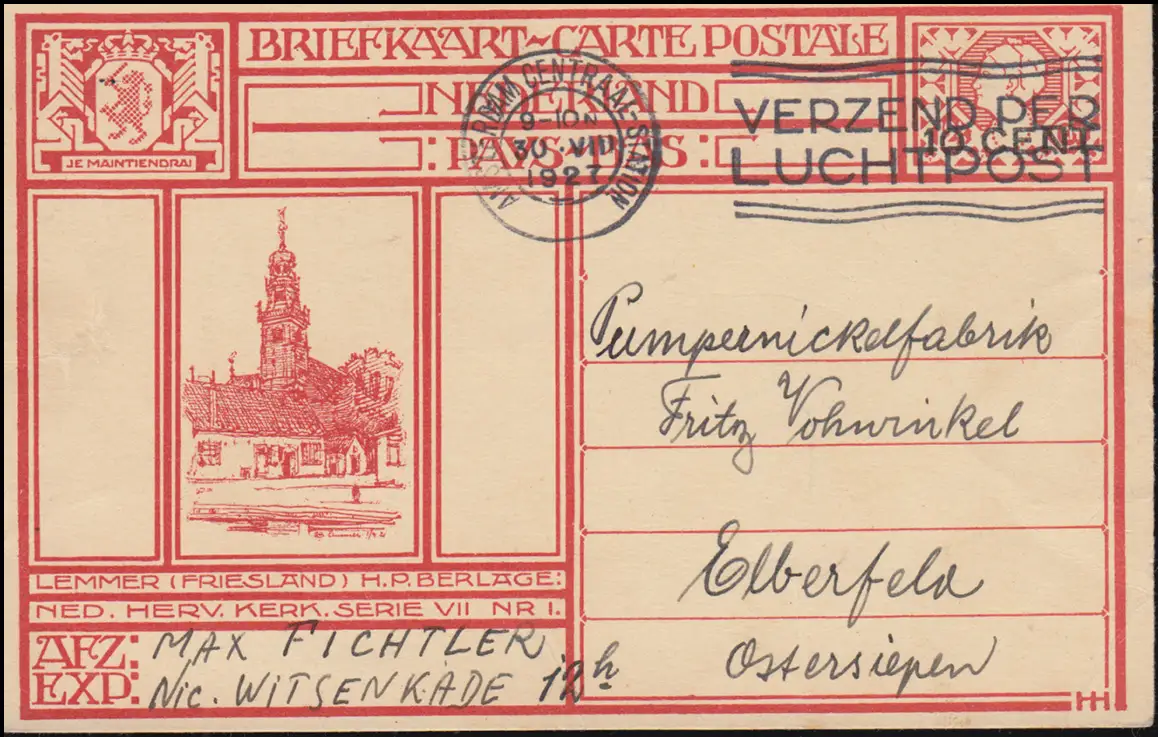 BRIEFKAART-CARTE POSTALE
NEDERLAND
PAYS-BAS
JE MAINTIENDRAI
AMSTERDAM CENTRAAL-STATION
9-10 N
30 VIII
1927
VERZEND PER
LUCHTPOST
10 CENT
Pumpernickelfabrik
Fritz Vohwinkel
Elberfeld
Ostersiepen
LEMMER (FRIESLAND) H.P. BERLAGE:
NED. HERV. KERK. SERIE VII NR 1.
AFZ: MAX FICHTLER
EXP: Nic. WITSENKADE 12h
HH